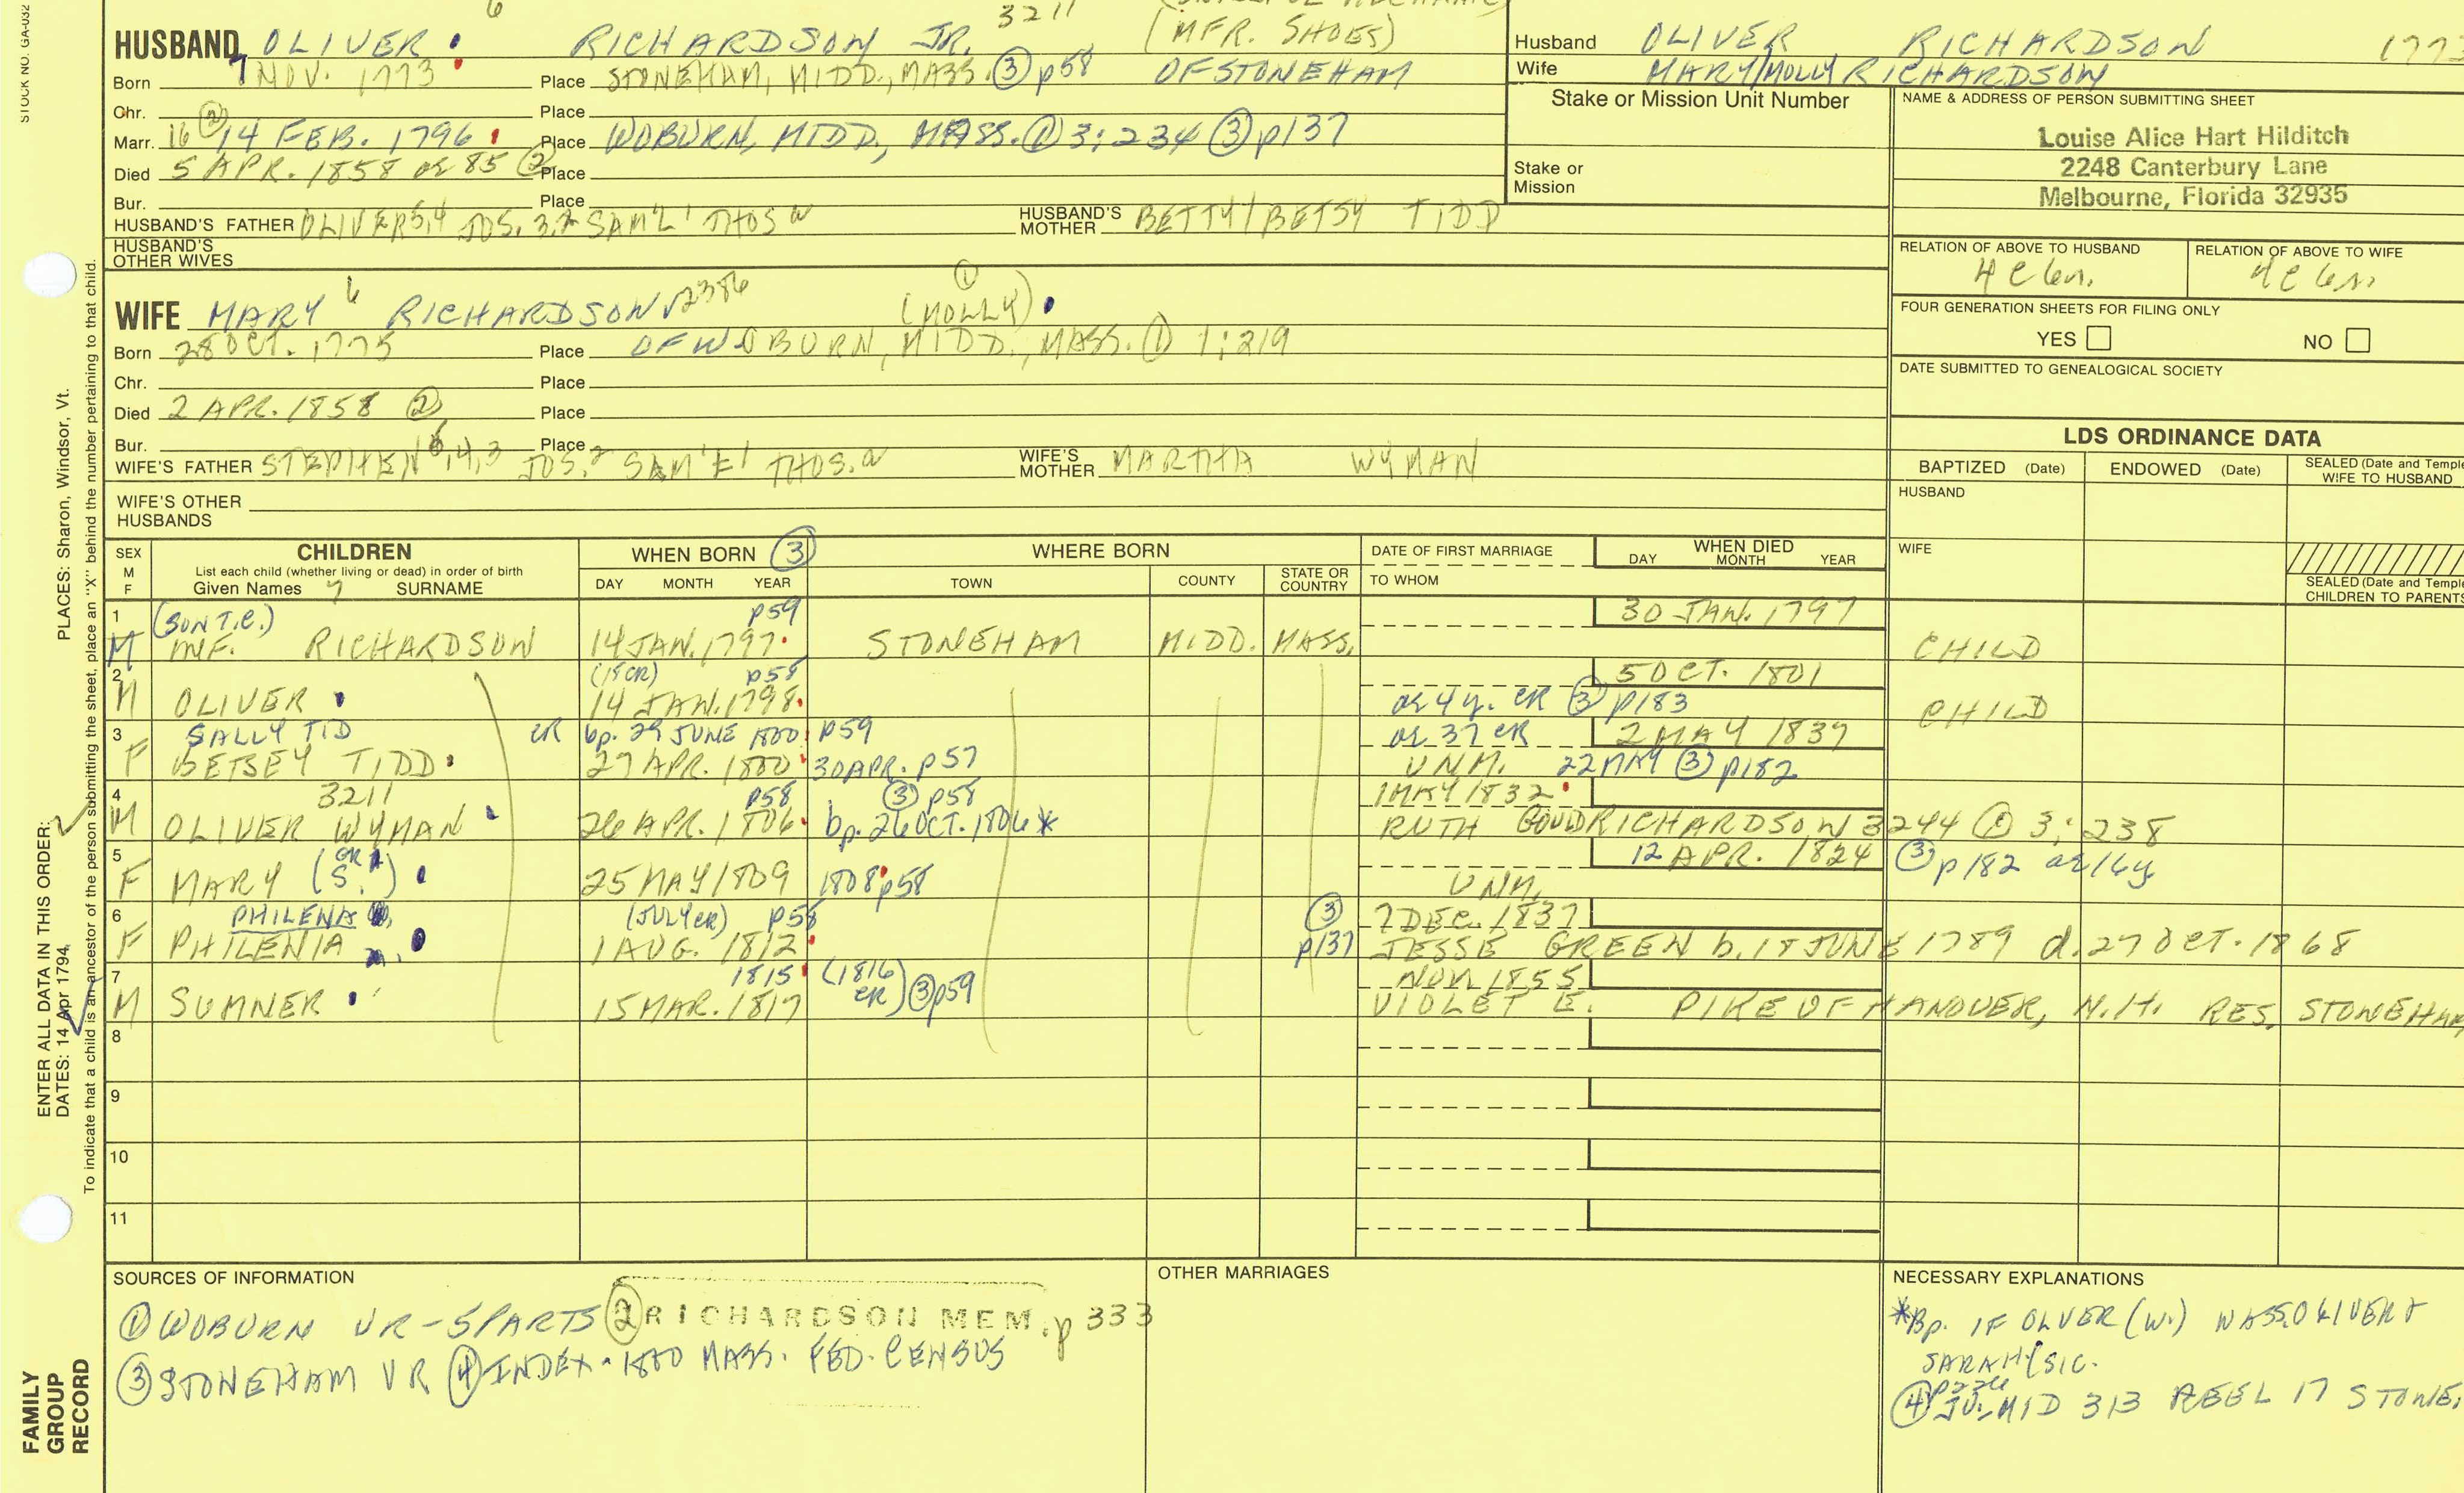 STOCK NO. GA-032
6
3211
(MFR. SHOES)
HUSBAND OLIVER RICHARDSON JR.
Born 7 NOV. 1773 Place STONEHAM, MIDD., MASS. ③ p58 OF STONEHAM
Chr. Place
Marr. 16 ② 14 FEB. 1796 Place WOBURN, MIDD., MASS. ① 3:234 ③ p137
Died 5 APR. 1858 ae 85 ② Place
Bur. Place
HUSBAND'S FATHER OLIVER 5,4 JOS. 3,2 SAM'L 1 THOS a
HUSBAND'S MOTHER BETTY/BETSY TIDD
HUSBAND'S OTHER WIVES
WIFE MARY 6 RICHARDSON 2386 (MOLLY) ①
Born 28 OCT. 1775 Place OF WOBURN, MIDD., MASS. ① 1:219
Chr. Place
Died 2 APR. 1858 ② Place
Bur. Place
WIFE'S FATHER STEPHEN 5,4,3 JOS. 2 SAM'L 1 THOS. a
WIFE'S MOTHER MARTHA WYMAN
WIFE'S OTHER HUSBANDS
Husband OLIVER RICHARDSON 177
Wife MARY/MOLLY RICHARDSON
Stake or Mission Unit Number
Stake or
Mission
NAME & ADDRESS OF PERSON SUBMITTING SHEET
Louise Alice Hart Hilditch
2248 Canterbury Lane
Melbourne, Florida 32935
RELATION OF ABOVE TO HUSBAND RELATION OF ABOVE TO WIFE
FOUR GENERATION SHEETS FOR FILING ONLY
YES NO
DATE SUBMITTED TO GENEALOGICAL SOCIETY
LDS ORDINANCE DATA
BAPTIZED (Date) ENDOWED (Date) SEALED (Date and Temple
WIFE TO HUSBAND
HUSBAND
WIFE
SEALED (Date and Temple
CHILDREN TO PARENTS
SEX
M
F
CHILDREN
List each child (whether living or dead) in order of birth
Given Names 7 SURNAME
WHEN BORN ③
DAY MONTH YEAR
WHERE BORN
TOWN COUNTY STATE OR COUNTRY
DATE OF FIRST MARRIAGE
TO WHOM
WHEN DIED
DAY MONTH YEAR
1 (SON T.C.) p59 30 JAN. 1797
M INF. RICHARDSON 14 JAN. 1797 STONEHAM MIDD. MASS. CHILD
2 (15 CR) p58 5 OCT. 1801
M OLIVER 14 JAN. 1798 ae 4y. CR ③ p183 CHILD
3 SALLY TID CR bp. 29 JUNE 1800 p59 ae 37 CR 2 MAY 1837
F BETSEY TIDD 27 APR. 1800 30 APR. p57 UNM. 22 MAY ③ p182
4 3211 p58 ③ p58 1 MAY 1832
M OLIVER WYMAN 26 APR. 1806 bp. 26 OCT. 1806* RUTH GOULD RICHARDSON 3244 ① 3:238
5 12 APR. 1824 ③ p182 ae 16y
F MARY (S.) 25 MAY 1809 1808 p58 UNM.
6 PHILENA (JULY CR) p58 ③ 7 DEC. 1837
F PHILENIA 1 AUG. 1812 p137 JESSE GREEN b. 18 JUNE 1789 d. 27 OCT. 1868
7 1815 (1816 CR) ③ p59 NOV. 1855
M SUMNER 15 MAR. 1817 VIOLET E. PIKE OF HANOVER, N.H. RES. STONEHAM
8
9
10
11
SOURCES OF INFORMATION
① WOBURN VR-5 PARTS ② RICHARDSON MEM. p 333
③ STONEHAM VR ④ INDEX - 1850 MASS. FED. CENSUS
OTHER MARRIAGES
NECESSARY EXPLANATIONS
*Bp. IF OLVER (W.) WAS S. OLIVER &
SARAH (SIC.
④ MID 313 REEL 17 STONE.
ENTER ALL DATA IN THIS ORDER:
DATES: 14 Apr 1794 PLACES: Sharon, Windsor, Vt.
To indicate that a child is an ancestor of the person submitting the sheet, place an "X" behind the number pertaining to that child.
FAMILY
GROUP
RECORD